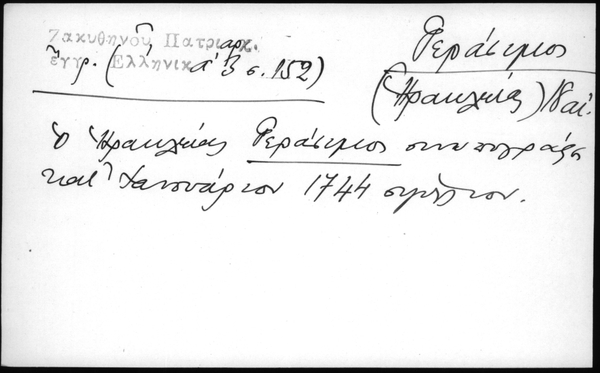 Ζακυθηνοῦ Πατριαρχ.
ἔγγρ. (Ἑλληνικά 3 σ. 152)
Γεράσιμος
(Ἡρακλείας) Ναί.
Ὁ Ἡρακλείας Γεράσιμος συνυπογράφει
κατ᾽ Ἰανουάριον 1744 σιγίλλιον.